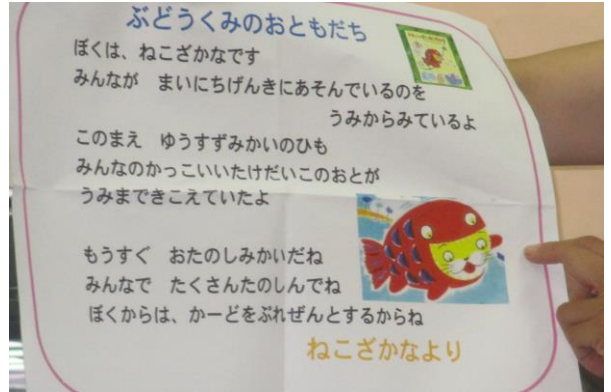 ぶどうくみのおともだち
ぼくは、ねこざかなです
みんなが　まいにちげんきにあそんでいるのを
うみからみているよ
このまえ　ゆうすずみかいのひも
みんなのかっこいいたけだいこのおとが
うみまできこえていたよ
もうすぐ　おたのしみかいだね
みんなで　たくさんたのしんでね
ぼくからは、かーどをぷれぜんとするからね
ねこざかなより